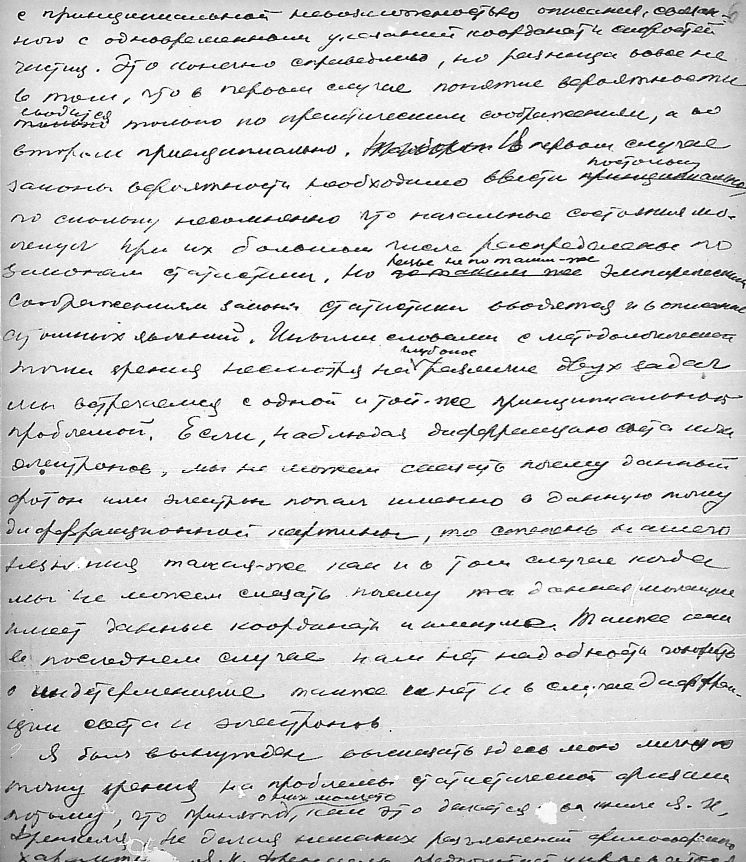 с принципиальной невозможностью описания, связан-
ного с одновременным указанием координат и скоростей
частиц. Это конечно справедливо, но разница вовсе не
в том, что в первом случае понятие вероятности
сводится
только по практическим соображениям, а во
втором принципиально. В первом случае
постольку
законы вероятности необходимо ввести принципиально
поскольку несомненно что начальные состояния мо-
гут при их большом числе распределены по
законам статистики. Но разве не по таким-же эмпирическим
соображениям законы статистики вводятся и в описание
атомных явлений. Иными словами с методологической
глубокое
точки зрения несмотря на различие двух задач
мы встречаемся с одной и той-же принципиальной
проблемой. Если, наблюдая диффракцию света или
электронов, мы не можем сказать почему данный
фотон или электрон попал именно в данную точку
диффракционной картины, то степень нашего
незнания такая-же как и в том случае когда
мы не можем сказать почему та данная молекула
имеет данные координаты и импульс. Также как
в последнем случае нам нет надобности говорить
о индетерминизме также и нет и в случае диффрак-
ции света и электронов.
Я был вынужден высказать здесь мою личную
точку зрения на проблемы статистической физики
потому, что принять, как это делается в книге Я. И.
Френкеля, не делая никаких разъяснений философского